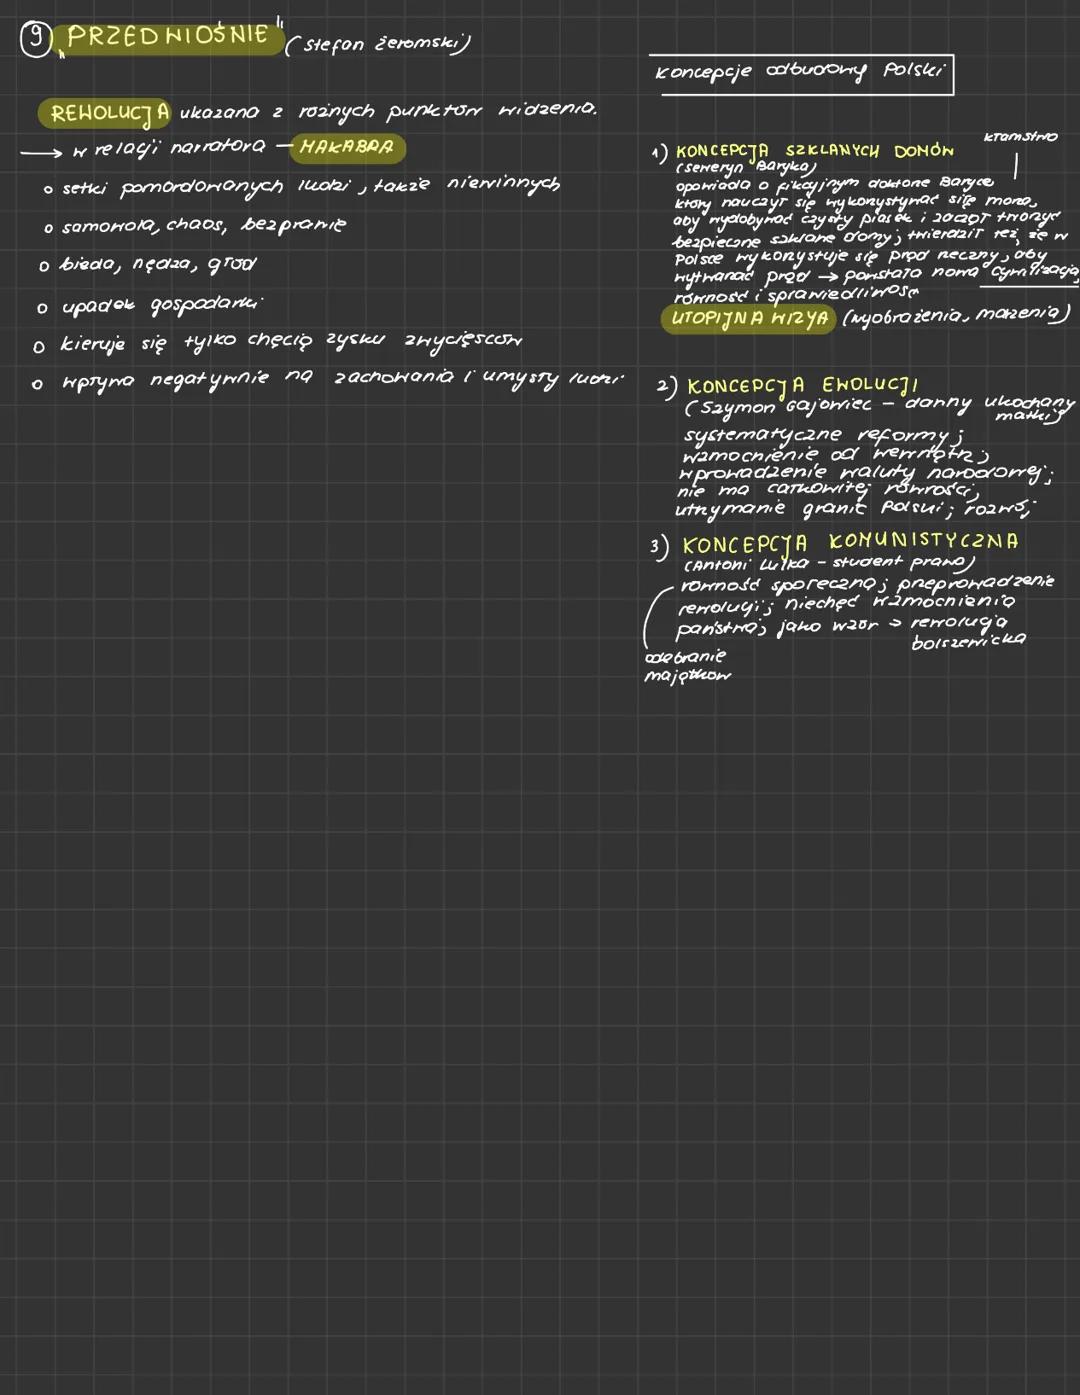 9 „PRZEDWIOŚNIE" (Stefan Żeromski)
REWOLUCJA ukazana z różnych punktów widzenia.
→ w relacji narratora – MAKABRA
o setki pomordowanych ludzi, także niewinnych
o samowola, chaos, bezprawie
o bieda, nędza, głód
o upadek gospodarki
o kieruje się tylko chęcią zysku zwycięsców
o wpływa negatywnie na zachowania i umysły ludzi
Koncepcje odbudowy Polski
kłamstwo
1) KONCEPCJA SZKLANYCH DOMÓW
(Seweryn Baryka)
opowiada o fikcyjnym doktorze Baryce,
który nauczył się wykorzystywać siłę morza,
aby wydobywać czysty piasek i zaczął tworzyć
bezpieczne szklane domy; twierdził też, że w
Polsce wykorzystuje się prąd rzeczny, aby
wytwarzać prąd → powstała nowa cywilizacja,
równość i sprawiedliwość
UTOPIJNA WIZYA (wyobrażenia, marzenia)
2) KONCEPCJA EWOLUCJI
(Szymon Gajowiec – dawny ukochany
matki)
systematyczne reformy;
wzmocnienie od wewnątrz;
wprowadzenie waluty narodowej;
nie ma całkowitej równości;
utrzymanie granic Polski; rozwój
3) KONCEPCJA KOMUNISTYCZNA
(Antoni Lulka – student prawa)
równość społeczna; przeprowadzenie
rewolucji; niechęć wzmocnienia
państwa; jako wzór → rewolucja
bolszewicka
odebranie
majątków